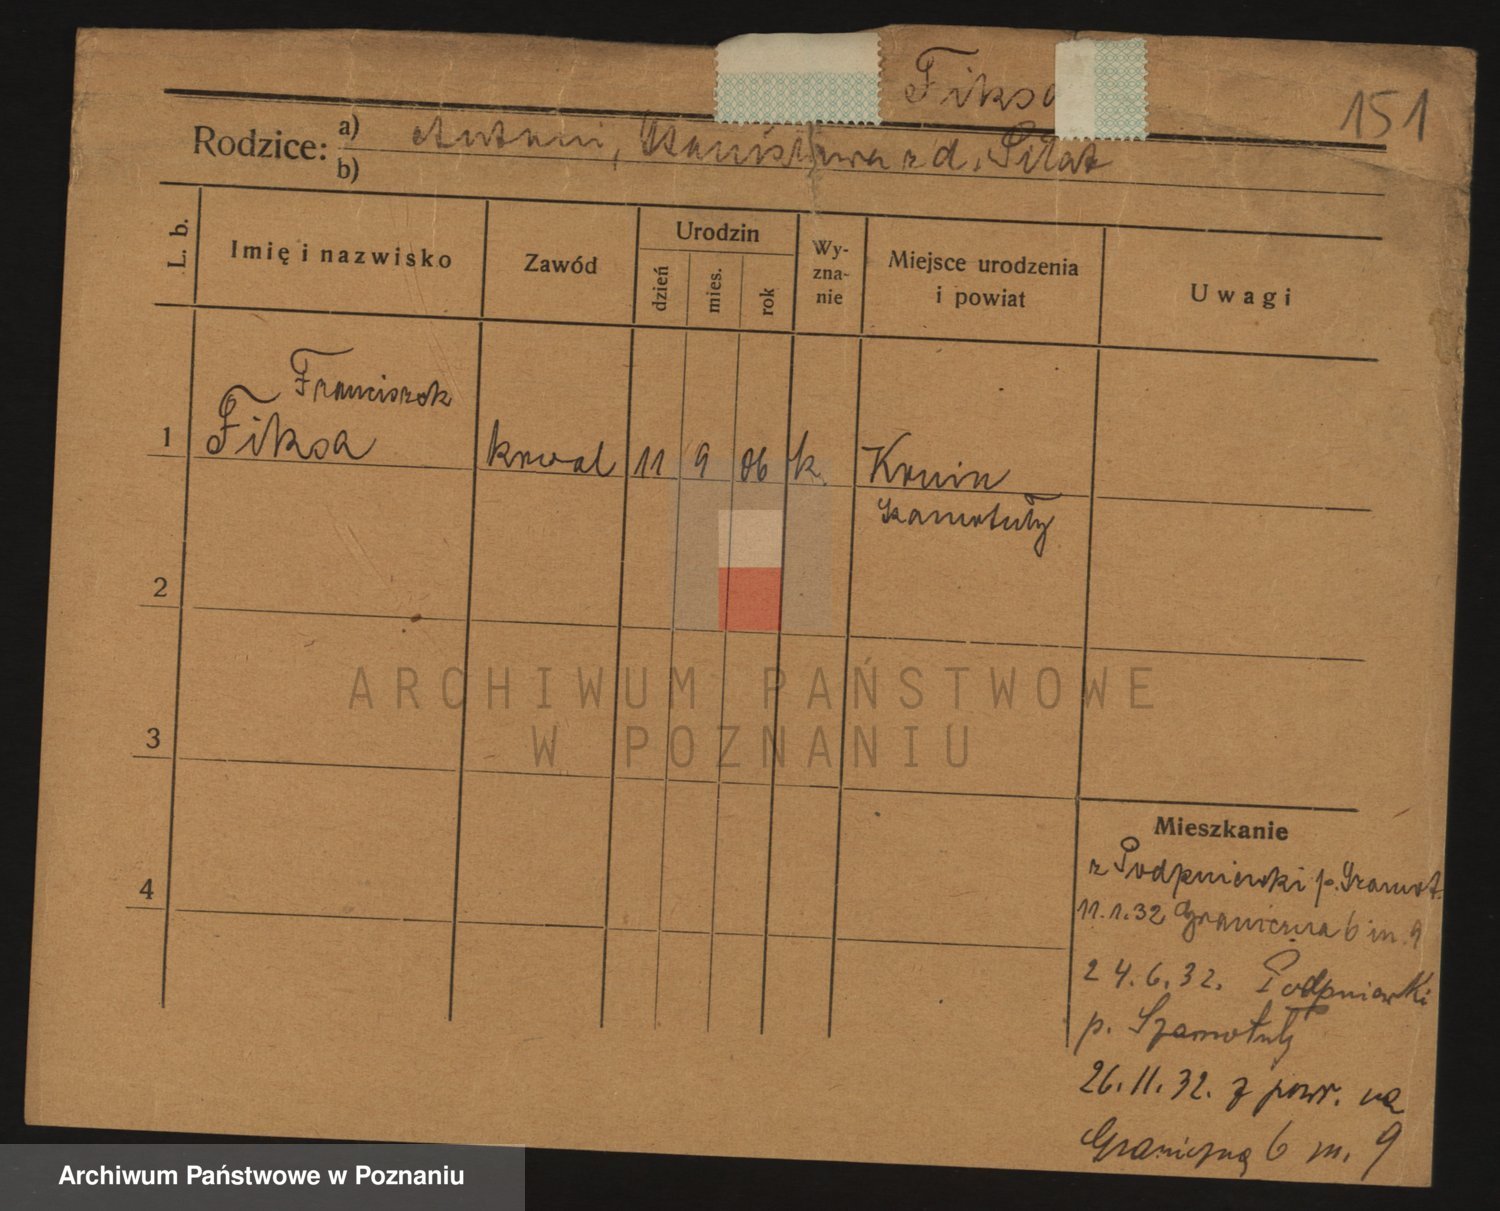 Fiksa
151
Rodzice: a) Antoni, Stanisława z d. Piłat
b)
L. b.
Imię i nazwisko
Zawód
Urodzin
dzień
mies.
rok
Wy-
zna-
nie
Miejsce urodzenia
i powiat
Uwagi
Franciszek
1 Fiksa
kowal 11 9 06 k. Kruin
Szamotuły
2
3
4
ARCHIWUM PAŃSTWOWE
W POZNANIU
Mieszkanie
z Podpniewki p. Szamot.
11.1.32 Graniczna 6 m. 9
24.6.32. Podpniewki
p. Szamotuły
26.11.32. z powr. na
Graniczną 6 m. 9
Archiwum Państwowe w Poznaniu